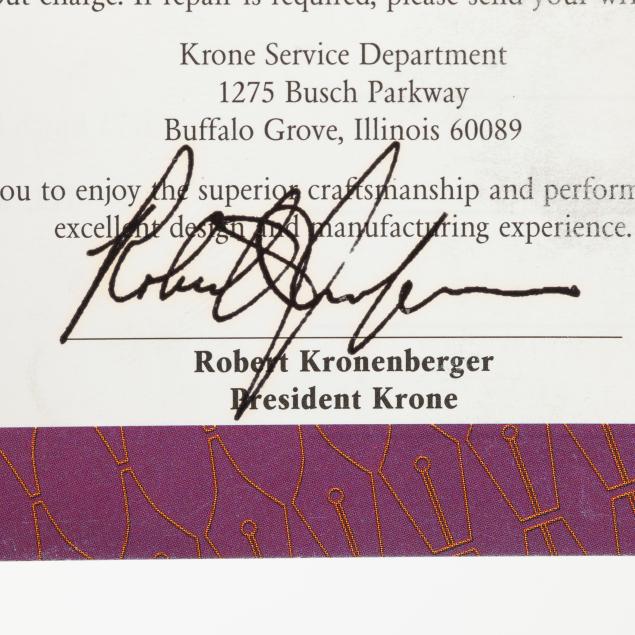 out charge. If repair is required, please send your
Krone Service Department
1275 Busch Parkway
Buffalo Grove, Illinois 60089
ou to enjoy the superior craftsmanship and perform
excellent design and manufacturing experience.
Robert Kronenberger
President Krone